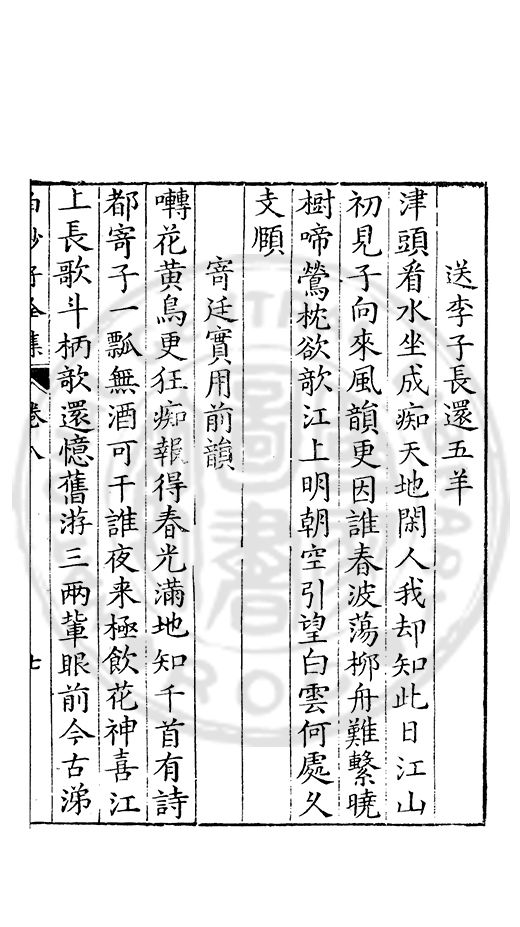 送李子長還五羊
津頭看水坐成痴天地閑人我却知此日江山
初見子向來風韻更因誰春波蕩栁舟難繫曉
樹啼鶯枕欲歌江上明朝空引望白雲何處乆
支頤
寄廷實用前韻
囀花黄鳥更狂痴報得春光滿地知千首有詩
都寄子一瓢無酒可干誰夜来極飲花神喜江
上長歌斗柄歌還憶舊游三兩軰眼前今古涕
白沙子全集 卷八 七